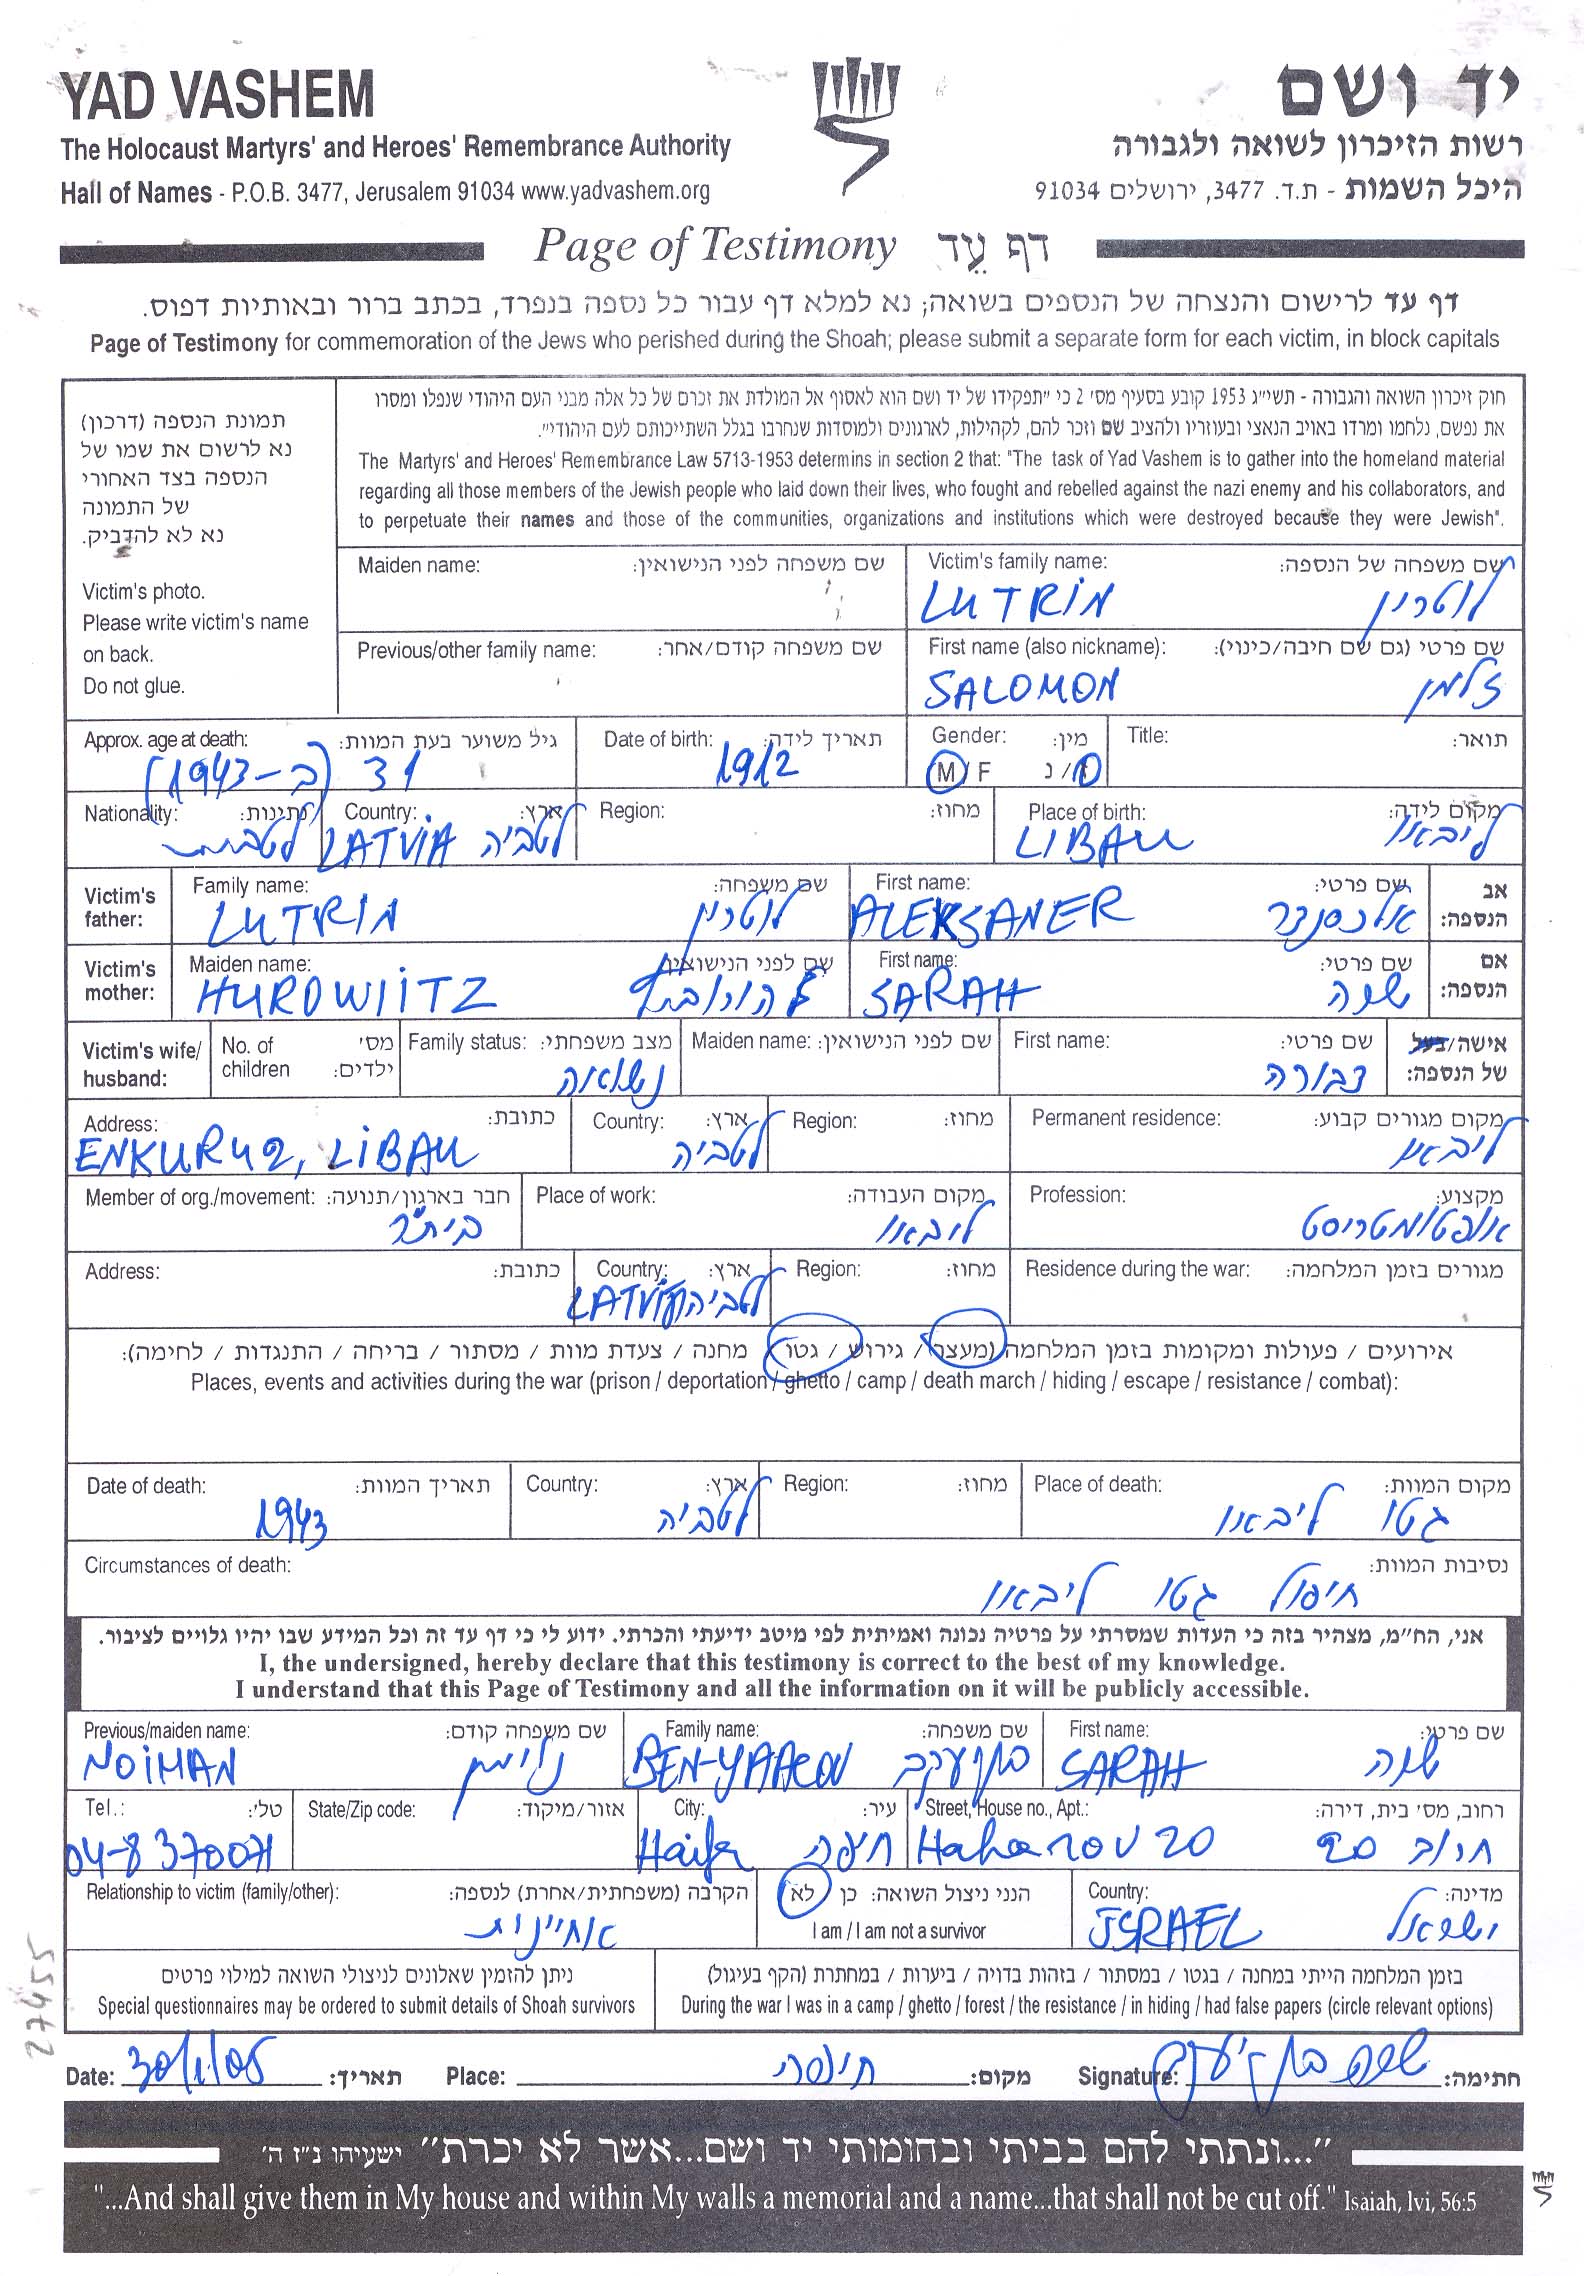 YAD VASHEM
יד ושם
The Holocaust Martyrs' and Heroes' Remembrance Authority
רשות הזיכרון לשואה ולגבורה
Hall of Names - P.O.B. 3477, Jerusalem 91034 www.yadvashem.org
היכל השמות - ת.ד. 3477, ירושלים 91034
Page of Testimony דף עֵד
דף עד לרישום והנצחה של הנספים בשואה; נא למלא דף עבור כל נספה בנפרד, בכתב ברור ובאותיות דפוס.
Page of Testimony for commemoration of the Jews who perished during the Shoah; please submit a separate form for each victim, in block capitals
תמונת הנספה (דרכון)
נא לרשום את שמו של
הנספה בצד האחורי
של התמונה
נא לא להדביק.
Victim's photo.
Please write victim's name
on back.
Do not glue.
חוק זיכרון השואה והגבורה - תשי״ג 1953 קובע בסעיף מס׳ 2 כי ״תפקידו של יד ושם הוא לאסוף אל המולדת את זכרם של כל אלה מבני העם היהודי שנפלו ומסרו
את נפשם, נלחמו ומרדו באויב הנאצי ובעוזריו ולהציב שם וזכר להם, לקהילות, לארגונים ולמוסדות שנחרבו בגלל השתייכותם לעם היהודי״.
The Martyrs' and Heroes' Remembrance Law 5713-1953 determins in section 2 that: "The task of Yad Vashem is to gather into the homeland material
regarding all those members of the Jewish people who laid down their lives, who fought and rebelled against the nazi enemy and his collaborators, and
to perpetuate their names and those of the communities, organizations and institutions which were destroyed because they were Jewish".
Maiden name: שם משפחה לפני הנישואין:
Victim's family name: שם משפחה של הנספה:
LUTRIN לוטרין
Previous/other family name: שם משפחה קודם/אחר:
First name (also nickname): שם פרטי (גם שם חיבה/כינוי):
SALOMON זלמן
Approx. age at death: גיל משוער בעת המוות:
31 (ב-1943)
Date of birth: תאריך לידה:
1912
Gender: מין:
M / F ז / נ
Title: תואר:
Nationality: נתינות:
לטבית
Country: ארץ:
LATVIA לטביה
Region: מחוז:
Place of birth: מקום לידה:
LIBAU ליבאו
Victim's father:
Family name: שם משפחה:
LUTRIN לוטרין
First name: שם פרטי:
ALEKSANER אלכסנדר
אב הנספה:
Victim's mother:
Maiden name: שם לפני הנישואין:
HUROWIITZ הורוביץ
First name: שם פרטי:
SARAH שרה
אם הנספה:
Victim's wife/ husband:
No. of children מס׳ ילדים:
Family status: מצב משפחתי:
נשואה
Maiden name: שם לפני הנישואין:
First name: שם פרטי:
דבורה
אישה/בעל של הנספה:
Address: כתובת:
ENKURU 42, LIBAU
Country: ארץ:
לטביה
Region: מחוז:
Permanent residence: מקום מגורים קבוע:
ליבאו
Member of org./movement: חבר בארגון/תנועה:
בית״ר
Place of work: מקום העבודה:
ליבאו
Profession: מקצוע:
אופטומטריסט
Address: כתובת:
Country: ארץ:
LATVIA לטביה
Region: מחוז:
Residence during the war: מגורים בזמן המלחמה:
אירועים / פעולות ומקומות בזמן המלחמה (מעצר / גירוש / גטו / מחנה / צעדת מוות / מסתור / בריחה / התנגדות / לחימה):
Places, events and activities during the war (prison / deportation / ghetto / camp / death march / hiding / escape / resistance / combat):
Date of death: תאריך המוות:
1943
Country: ארץ:
לטביה
Region: מחוז:
Place of death: מקום המוות:
גטו ליבאו
Circumstances of death: נסיבות המוות:
חיסול גטו ליבאו
אני, הח״מ, מצהיר בזה כי העדות שמסרתי על פרטיה נכונה ואמיתית לפי מיטב ידיעתי והכרתי. ידוע לי כי דף עד זה וכל המידע שבו יהיו גלויים לציבור.
I, the undersigned, hereby declare that this testimony is correct to the best of my knowledge.
I understand that this Page of Testimony and all the information on it will be publicly accessible.
Previous/maiden name: שם משפחה קודם:
NOIMAN נוימן
Family name: שם משפחה:
BEN-YAAKOV בן יעקב
First name: שם פרטי:
SARAH שרה
Tel.: טל׳:
04-8370071
State/Zip code: אזור/מיקוד:
City: עיר:
Haifa חיפה
Street, House no., Apt.: רחוב, מס׳ בית, דירה:
20
Relationship to victim (family/other): הקרבה (משפחתית/אחרת) לנספה:
אחיינית
הנני ניצול השואה: כן לא
I am / I am not a survivor
Country: מדינה:
ISRAEL ישראל
ניתן להזמין שאלונים לניצולי השואה למילוי פרטים
Special questionnaires may be ordered to submit details of Shoah survivors
בזמן המלחמה הייתי במחנה / בגטו / במסתור / בזהות בדויה / ביערות / במחתרת (הקף בעיגול)
During the war I was in a camp / ghetto / forest / the resistance / in hiding / had false papers (circle relevant options)
27455
Date: 30/1/05 תאריך: Place: חיפה מקום: Signature: שרה בן יעקב חתימה:
״...ונתתי להם בביתי ובחומותי יד ושם...אשר לא יכרת״ ישעיהו נ״ו ה׳
"...And shall give them in My house and within My walls a memorial and a name...that shall not be cut off." Isaiah, lvi, 56:5